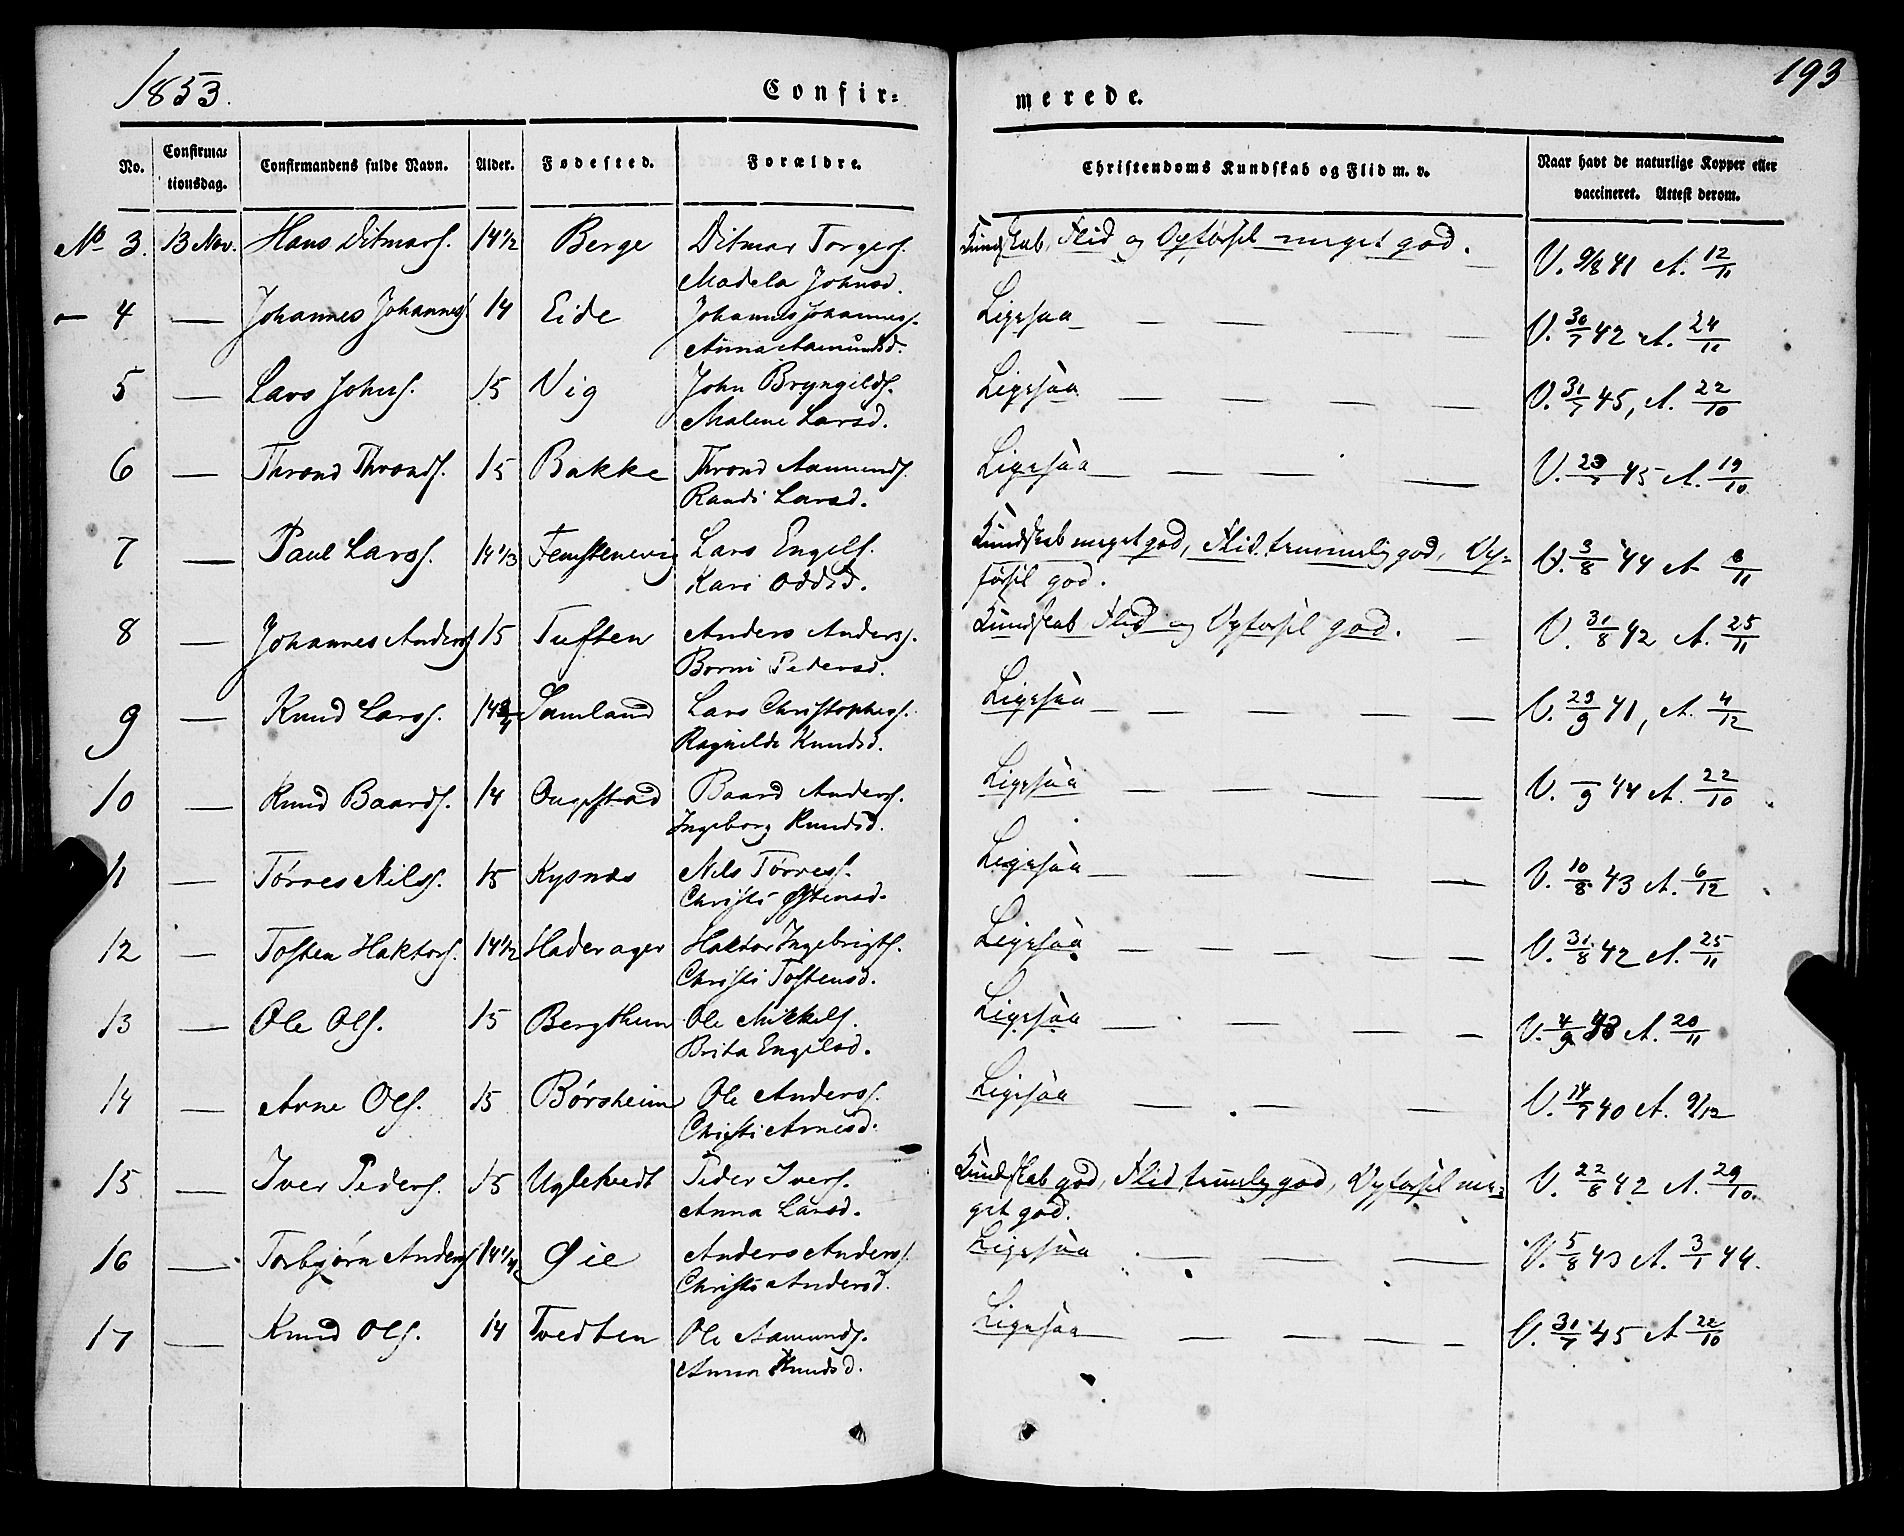 1853. Confir- merede. 193
No. Confirmationsdag. Confirmandens fulde Navn. Alder. Fødested. Forældre. Christendoms Kundskab og Flid m. v. Naar havt de naturlige Kopper eller vaccineret. Attest derom.
No 3. 13 Nov. Hans Ditmars. 14 1/2 Berge Ditmar Torgers. Kundskab, Flid og Opførsel meget god. — V. 9/8 41 A. 12/11
Madela Johnsd.
— 4 — Johannes Johanness. 14 Eide Johannes Johanness. Ligesaa — V. 30/7 42 A. 24/11
Anna Aamundsd.
5 — Lars Johns. 15 Vig John Bryngilds. Ligesaa — V. 31/7 45, A. 22/10
Malene Larsd.
6 — Thrond Thronds. 15 Bakke Thrond Aamunds. Ligesaa — V. 45 A. 19/10
Randi Larsd.
7 — Paul Larss. 14 1/3 Femstenevig Lars Engels. Kundskab meget god, Flid temmelig god, Op-
førsel god. V. 3/8 44 A. 8/11
Kari Oddsd.
8 — Johannes Anderss 15 Tuften Anders Anderss. Kundskab Flid og Opførsel god. — V. 31/8 42 A. 25/11
Borni Pedersd.
9 — Knud Larss. 14 3/4 Samland Lars Christophers. Ligesaa — V. 23/9 41, A. 4/12
Ragnilde Knudsd.
10 — Knud Baards. 14 Baard Anders. Ligesaa — V. —/9 44 A. 22/10
Ingeborg Knudsd.
11 — Tørres Nilss. 15 Kysnæs Nils Tørress. Ligesaa — V. 10/8 43 A. 6/12
Christi Østensd.
12 — Tosten Haktors. 14 1/2 Haderager Haktor Ingebrigts. Ligesaa — V. 31/8 42 A. 25/11
Christi Tostensd.
13 — Ole Ols. 15 Bergthun Ole Mikkels. Ligesaa — V. 4/9 43 A. 20/11
Brita Engelsd.
14 — Arne Ols. 15 Børsheim Ole Anderss. Ligesaa — V. 14/7 40 A. 9/12
Christi Arnesd.
15 — Iver Peders. 15 Uglekvedt Peder Ivers. Kundskab god, Flid temelig god, Opførsel me-
get god. V. 22/8 42 A. 29/10
Anna Larsd.
16 — Torbjørn Anderss 14 1/4 Øie Anders Anderss. Ligesaa — V. 5/8 43 A. 3/1 44.
Christi Andersd.
17 — Knud Ols. 14 Tvedten Ole Aamunds. Ligesaa — V. 31/7 45 A 22/10
Anna Knudsd.